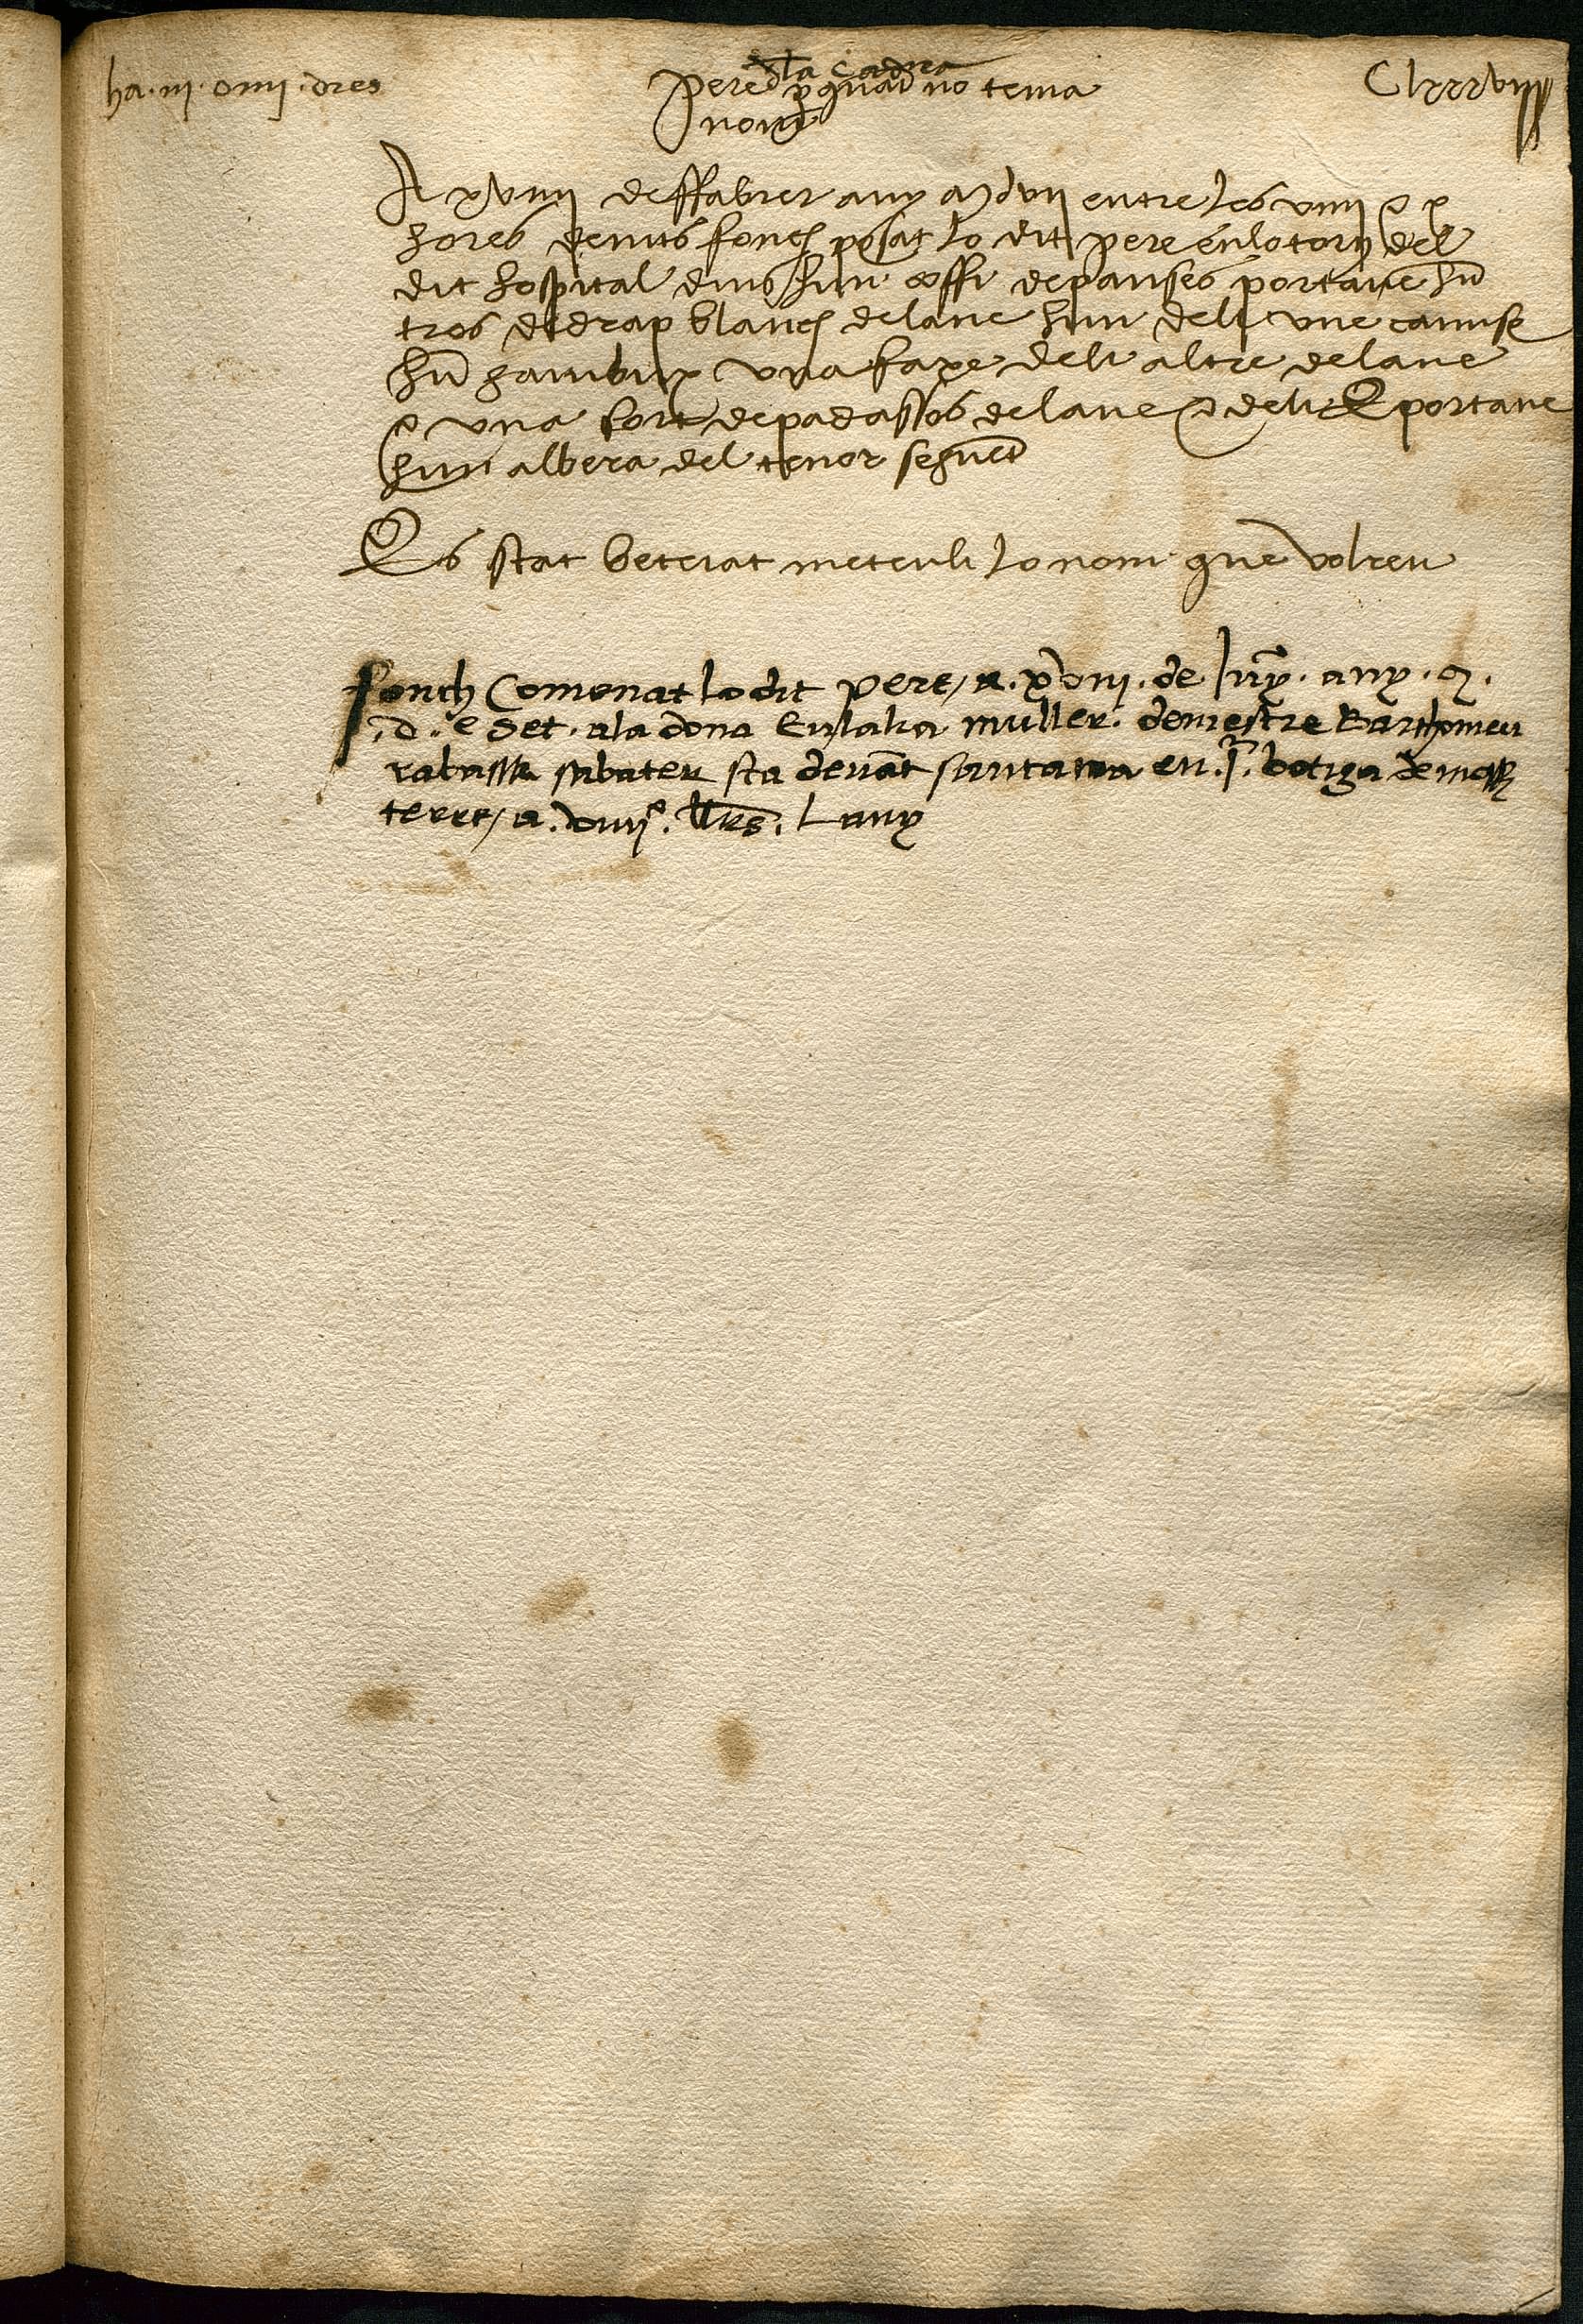 ha .iii. o iiij .dies
dla cadira
Pere perque no tenia
nom
Clxxxviiij
A xviiij deffabrer any mdvij entre les viiij e x
hores denits fonch posat lo dit pere enlotorn del
dit hospital dins hun coffi depanses portave hu
tros de drap blanch delane hun deli une camise
hu gambux una faxe deli altre delane
e una sort depadassos delane e deli E portave
hun albera del tenor seguet
Es stat betejat meteuli lo nom que volreu
fonch Comenat lo dit pere / a . xviij . de juy . any . m .
.d. e set . ala dona Eulalia muller . demestre Barthomeu
rabassa sabater sta devat santa anna en .j . botiga de moss
terre / a . viiij . llrs . Lany